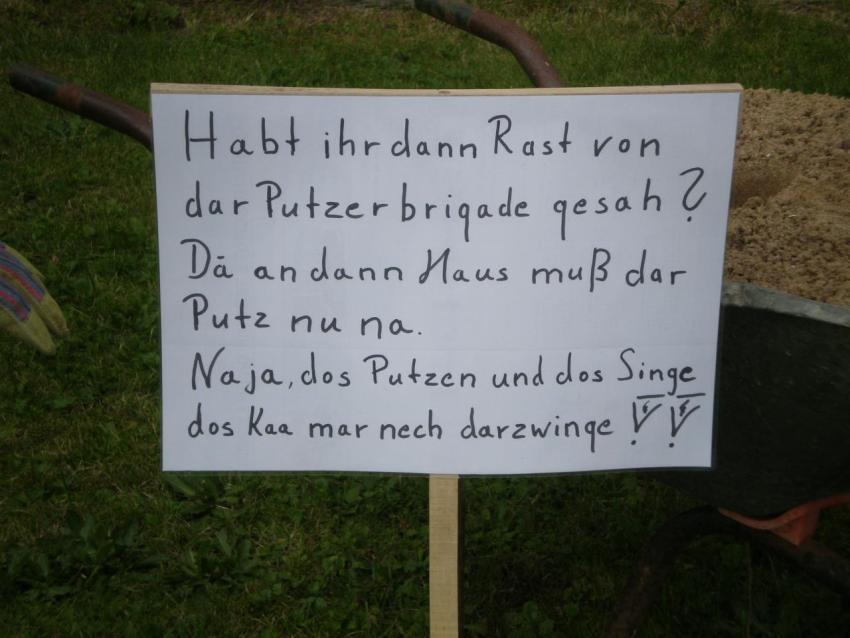 Habt ihr dann Rast von
dar Putzerbrigade gesah?
Dä an dann Haus muß dar
Putz nu na.
Naja, dos Putzen und dos Singe
dos Kaa mar nech darzwinge !!